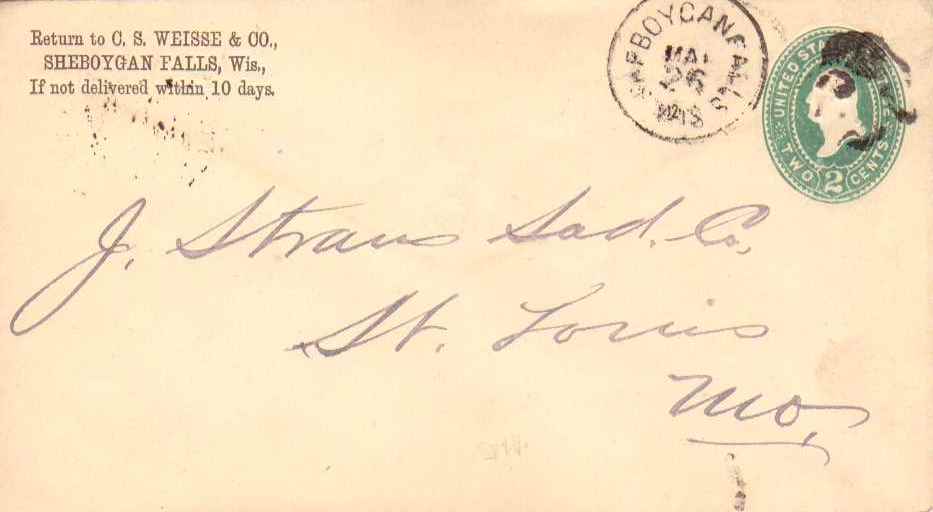 Return to C. S. WEISSE & CO.,
SHEBOYGAN FALLS, Wis.,
If not delivered within 10 days.
SHEBOYGAN FALLS
26
WIS
UNITED STATES
TWO 2 CENTS
J. Straus Sad. Co,
St. Louis
Mo,